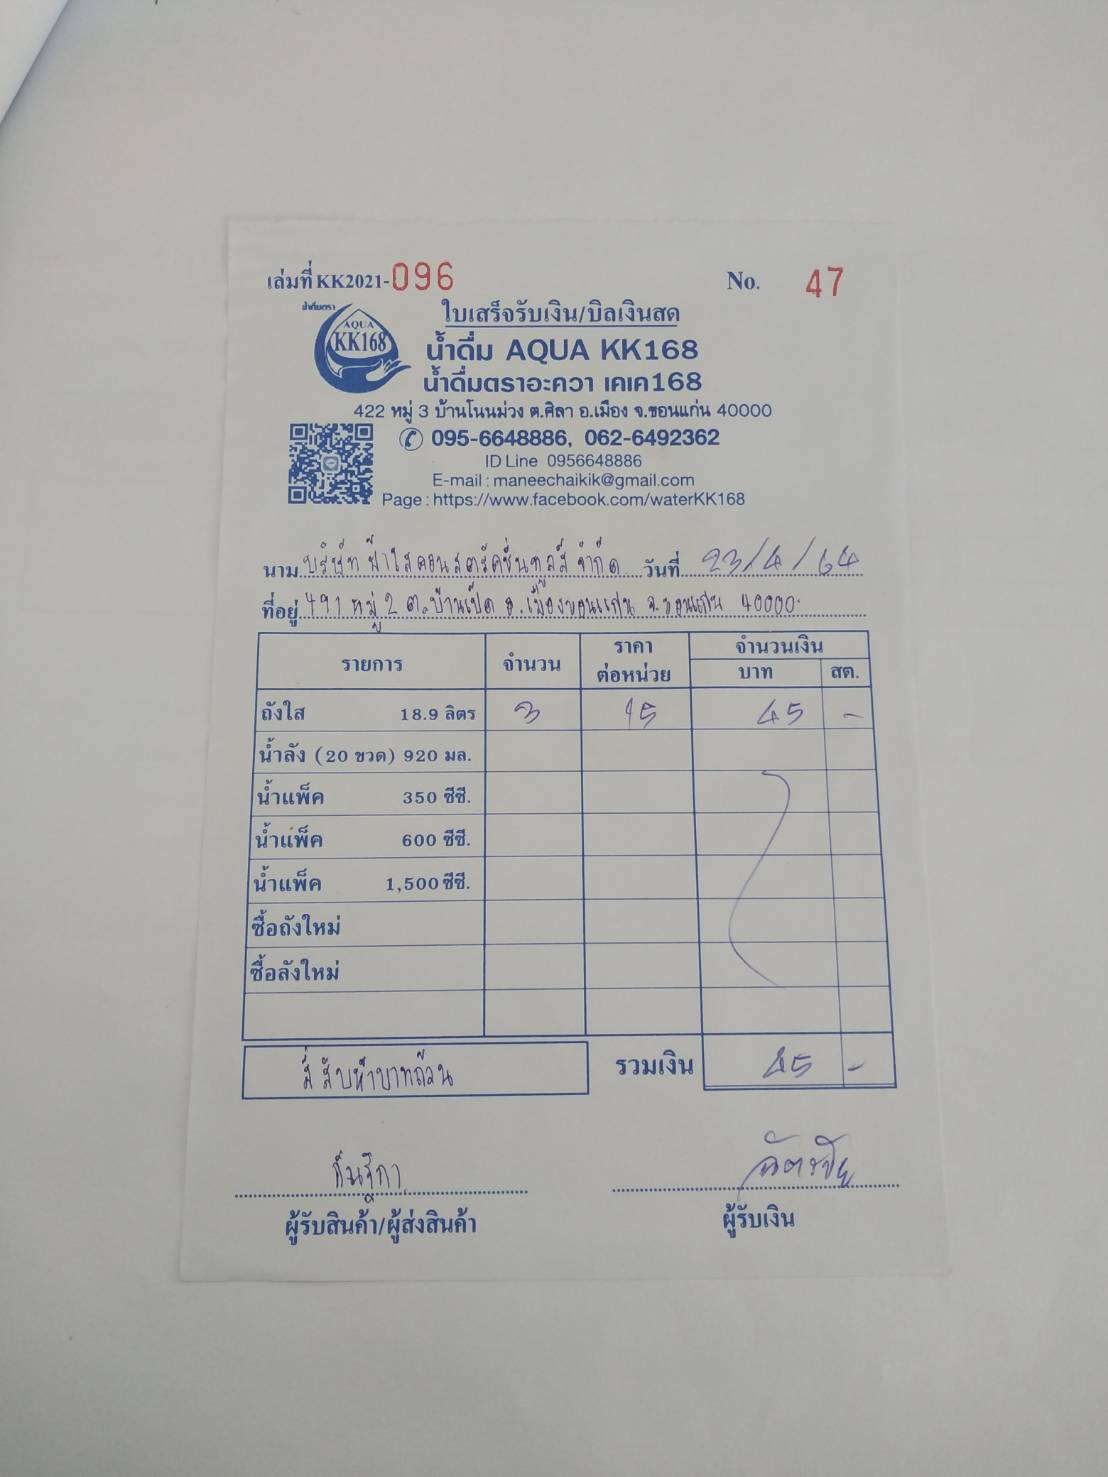 เล่มที่ KK2021-096 No. 47
น้ำดื่มตรา
AQUA
KK168
ใบเสร็จรับเงิน/บิลเงินสด
น้ำดื่ม AQUA KK168
น้ำดื่มตราอะควา เคเค168
422 หมู่ 3 บ้านโนนม่วง ต.ศิลา อ.เมือง จ.ขอนแก่น 40000
095-6648886, 062-6492362
ID Line 0956648886
E-mail : maneechaikik@gmail.com
Page : https://www.facebook.com/waterKK168
นาม บริษัท ฟ้าใสคอนสตรัคชั่นทูลส์ จำกัด วันที่ 23/4/64
ที่อยู่ 491 หมู่ 2 ต.บ้านเป็ด อ.เมืองขอนแก่น จ.ขอนแก่น 40000
รายการ จำนวน ราคา ต่อหน่วย จำนวนเงิน
บาท สต.
ถังใส 18.9 ลิตร 3 15 45 -
น้ำลัง (20 ขวด) 920 มล.
น้ำแพ็ค 350 ซีซี.
น้ำแพ็ค 600 ซีซี.
น้ำแพ็ค 1,500 ซีซี.
ซื้อถังใหม่
ซื้อลังใหม่
สี่สิบห้าบาทถ้วน รวมเงิน 45 -
ฉัตรชัย
ผู้รับสินค้า/ผู้ส่งสินค้า ผู้รับเงิน